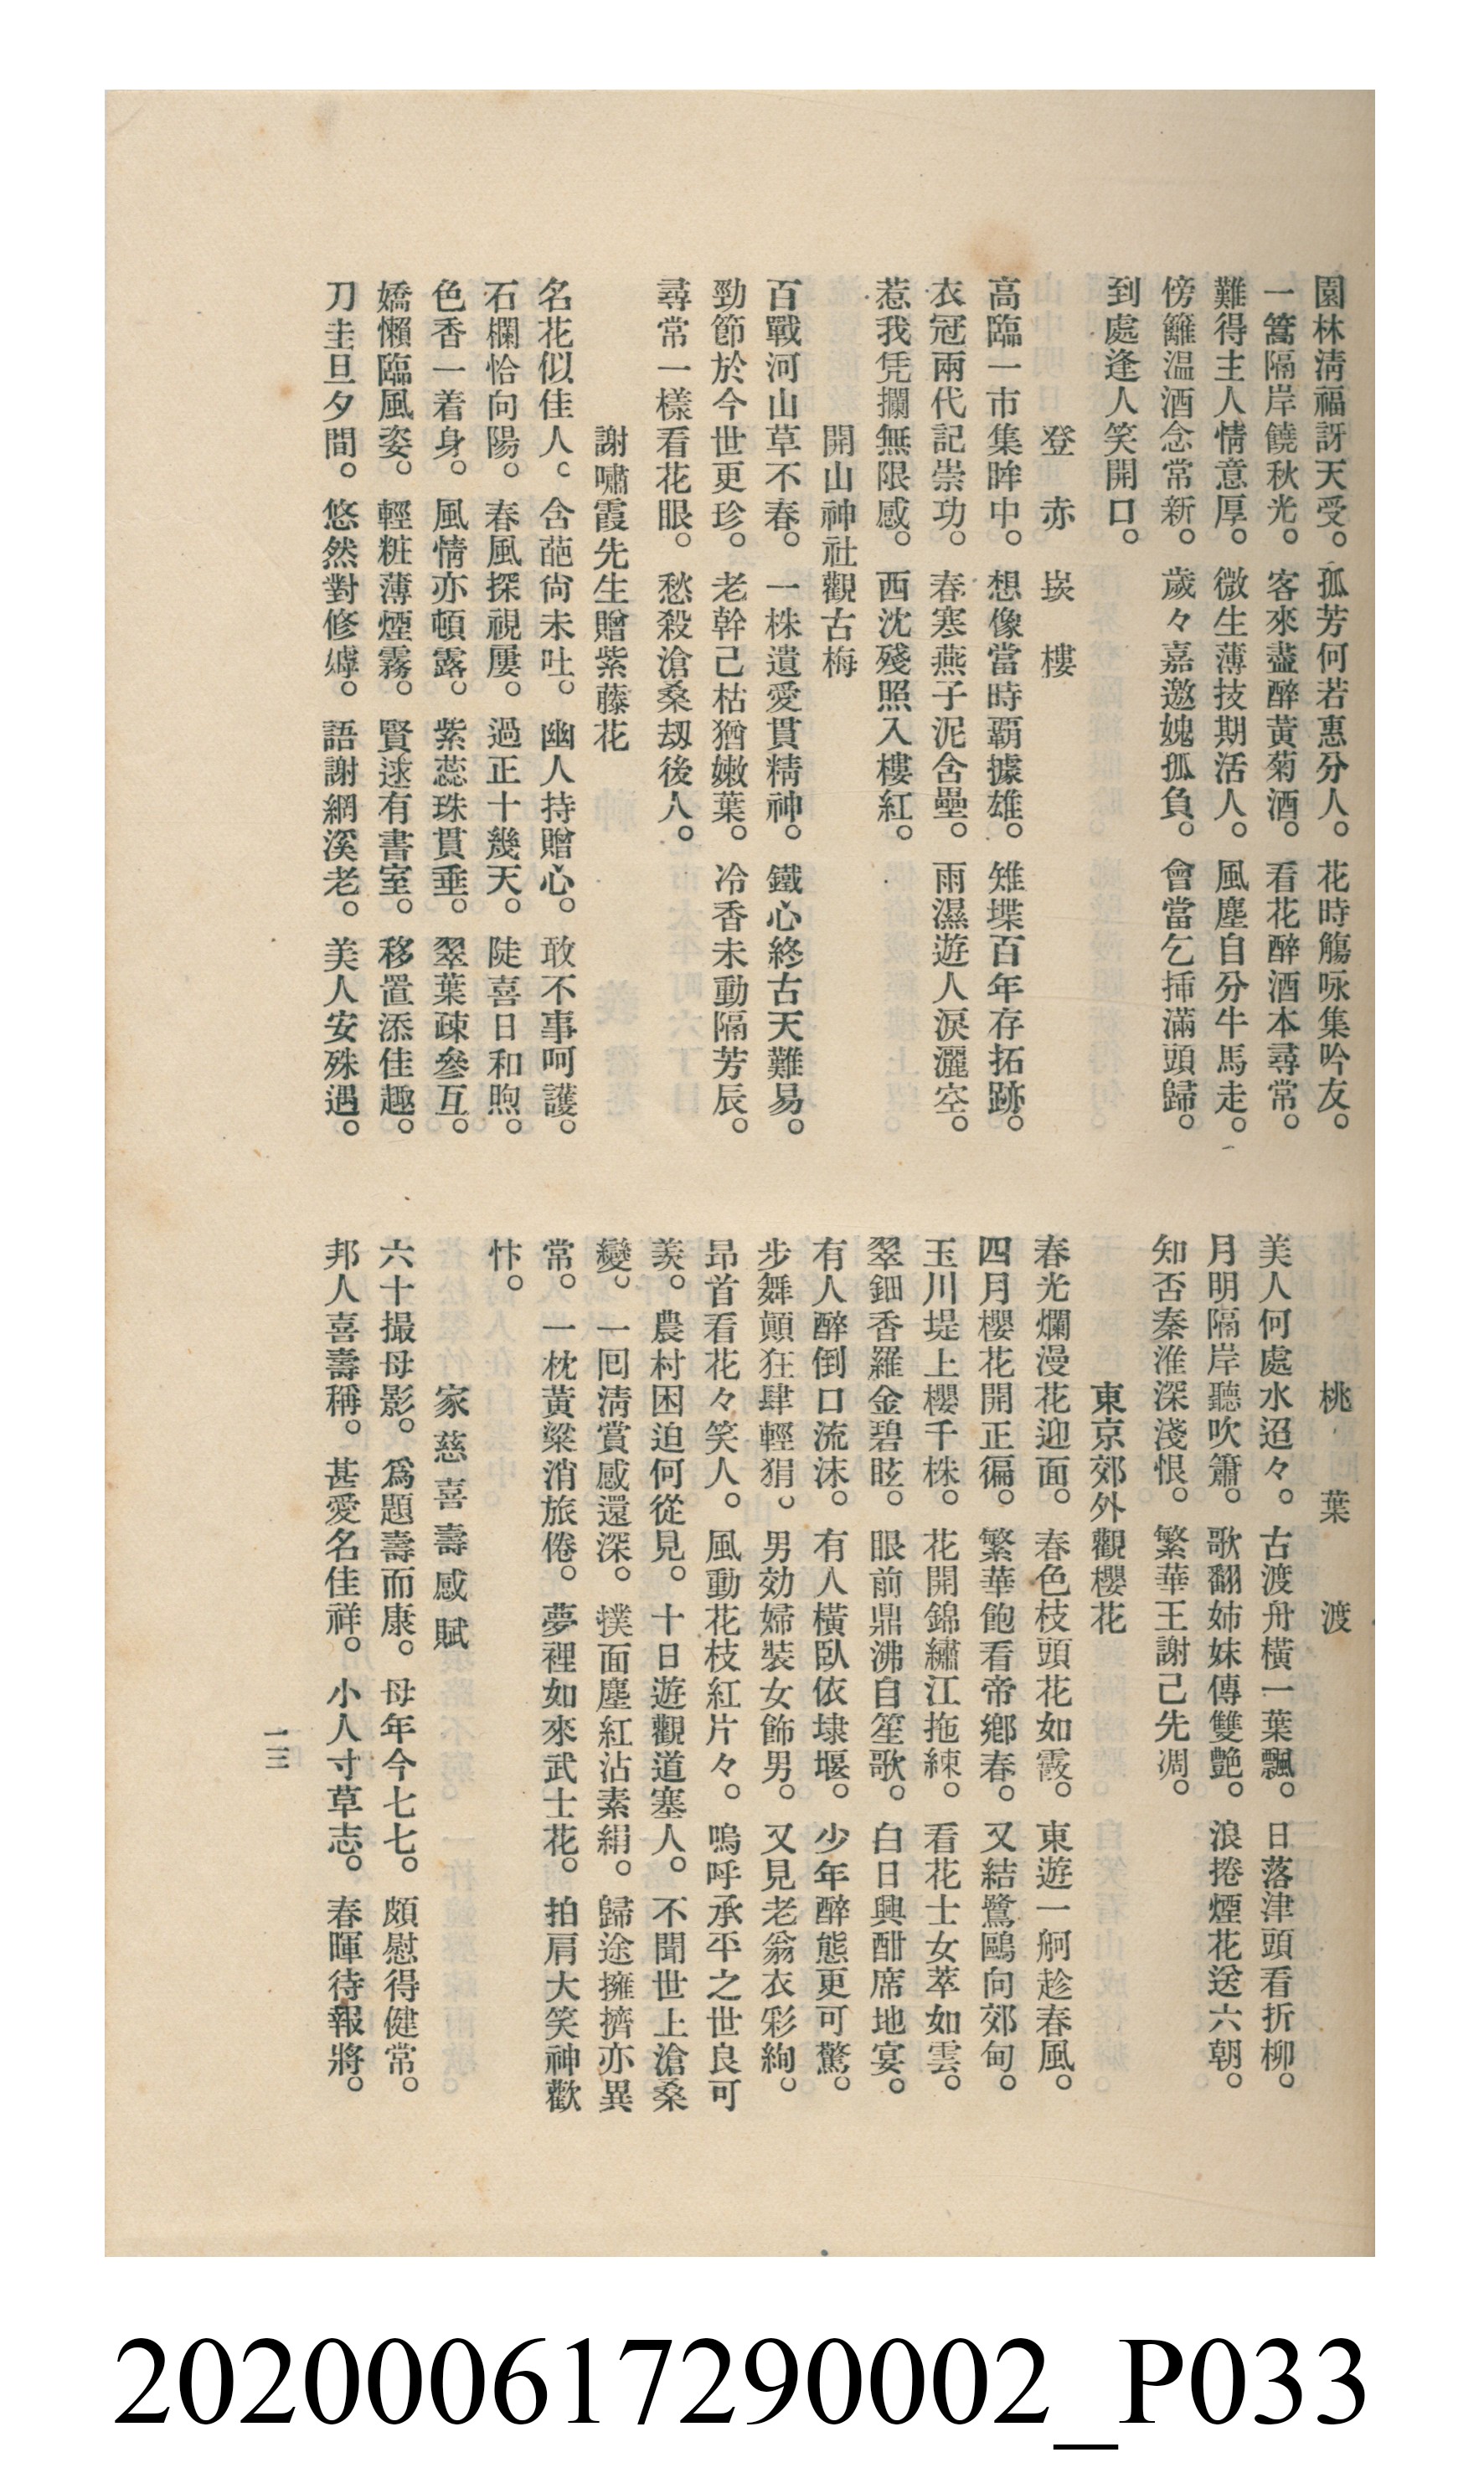 園林清福訝天受。孤芳何若惠分人。花時觴咏集吟友。
一篙隔岸饒秋光。客來盡醉黃菊酒。看花醉酒本尋常。
難得主人情意厚。微生薄技期活人。風塵自分牛馬走。
傍籬温酒念常新。歲々嘉邀媿孤負。會當乞挿滿頭歸。
到處逢人笑開口。
登赤崁樓
高臨一市集眸中。想像當時覇據雄。雉堞百年存拓跡。
衣冠兩代記崇功。春寒燕子泥含壘。雨濕遊人淚灑空。
惹我凭攔無限感。西沈殘照入樓紅。
開山神社觀古梅
百戰河山草不春。一株遺愛貫精神。鐵心終古天難易。
勁節於今世更珍。老幹己枯猶嫩葉。冷香未動隔芳辰。
尋常一樣看花眼。愁殺滄桑刼後人。
謝嘯霞先生贈紫藤花
名花似佳人。含葩尙未吐。幽人持贈心。敢不事呵護。
石欄恰向陽。春風探視屢。過正十幾天。陡喜日和煦。
色香一着身。風情亦頓露。紫蕊珠貫垂。翠葉疎參互。
嬌懶臨風姿。輕粧薄煙霧。賢逑有書室。移置添佳趣。
刀圭旦夕間。悠然對修嫭。語謝網溪老。美人安殊遇。
桃葉渡
美人何處水迢々。古渡舟橫一葉飄。日落津頭看折柳。
月明隔岸聽吹簫。歌翻姉妹傳雙艶。浪捲煙花送六朝。
知否秦淮深淺恨。繁華王謝己先凋。
東京郊外觀櫻花
春光爛漫花迎面。春色枝頭花如霞。東遊一舸趁春風。
四月櫻花開正徧。繁華飽看帝鄉春。又結鷺鷗向郊甸。
玉川堤上櫻千株。花開錦繡江拖練。看花士女萃如雲。
翠鈿香羅金碧眩。眼前鼎沸自笙歌。白日興酣席地宴。
有人醉倒口流沫。有人橫臥依埭堰。少年醉態更可驚。
步舞顚狂肆輕狷。男効婦裝女飾男。又見老翁衣彩絢。
昂首看花々笑人。風動花枝紅片々。嗚呼承平之世良可
羨。農村困迫何從見。十日遊觀道塞人。不聞世上滄桑
變。一回淸賞感還深。撲面塵紅沾素絹。歸途擁擠亦異
常。一枕黃粱消旅倦。夢裡如來武士花。拍肩大笑神歡
忭。
家慈喜壽感賦
六十撮母影。爲題壽而康。母年今七七。頗慰得健常。
邦人喜壽稱。甚愛名佳祥。小人寸草志。春暉待報將。
一三
202000617290002_P033